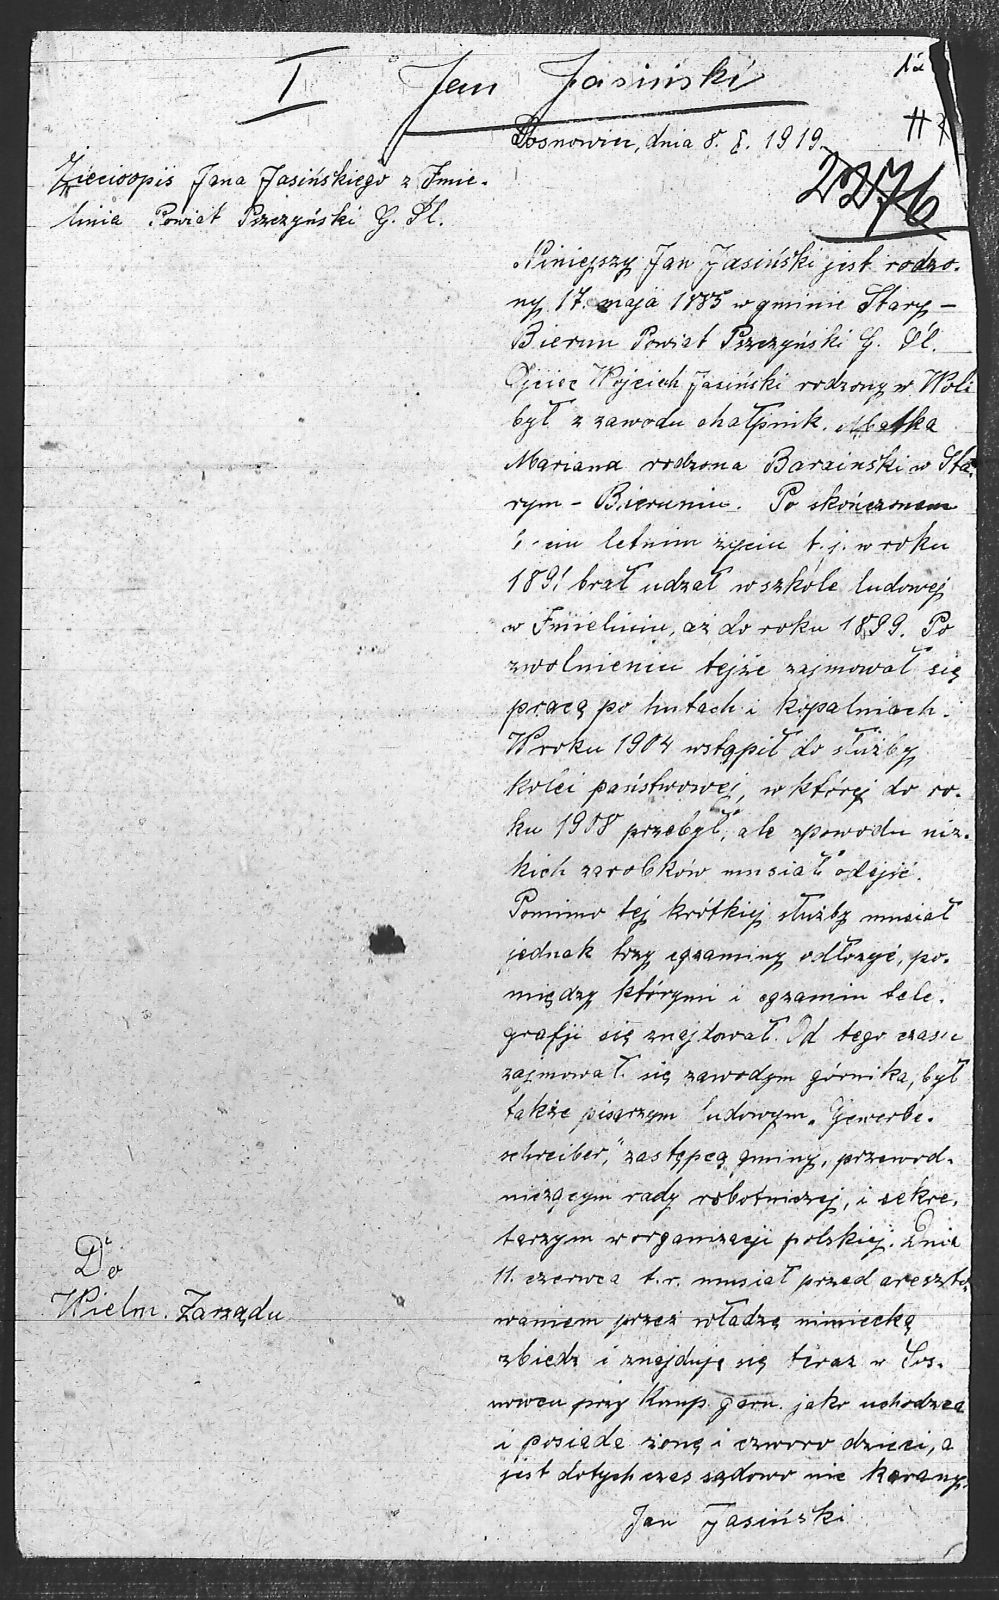 I Jan Jasiński
Sosnowiec, dnia 8. 8. 1919.
2276
Życioopis Jana Jasińskiego z Imie-
linia Powiat Pszczyński G. Śl.
Niniejszy Jan Jasiński jest rodzo-
ny 17. maja 1885 w gminie Stary-
Bierun Powiat Pszczyński G. Śl.
Ojciec Wojciech Jasiński rodzony w Woli
był z zawodu chałpnik. Matka
Marianna rodzona Barainski w Sta-
rym - Bieruniu. Po skończonem
6-ciu letnim życiu t. j. w roku
1891 brał udzał w szkole ludowej
w Imieliniu, aż do roku 1899. Po
zwolnieniu tejże zajmował się
pracą po hutach i kopalniach.
W roku 1904 wstąpił do służby
kolei państwowej, w której do ro-
ku 1908 przebył, ale zpowodu niz-
kich zarobków musiał odejść.
Pomimo tej krótkiej służby musiał
jednak trzy egzaminy odłożyć, po-
między którymi i egzamin tele-
grafji się znajdował. Od tego czasu
zajmował się zawodym górnika, był
także pisarzym ludowym „Gewerbe-
schreiber," zastępcą gminy, przewod-
niczącym rady robotniczej, i sekre-
tarzym w organizacji polskiej. Dnia
11. czerwca t. r. musiał przed areszto-
waniem przez władzę nimiecką
zbiedz i znajduję się teraz w Sos-
nowcu przy Komp. garn. jako uchodzca
i posiada żonę i czworo dzieci, a
jest dotychczas sądowo nie karany.
Jan Jasiński
Do
Wielm. Zarządu